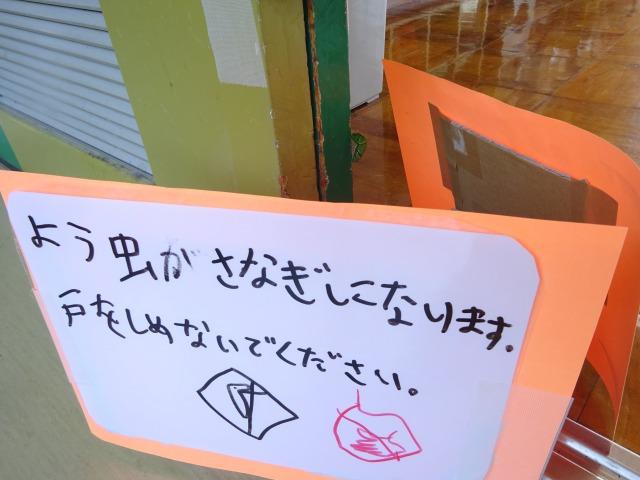 よう虫がさなぎになります。
戸をしめないでください。